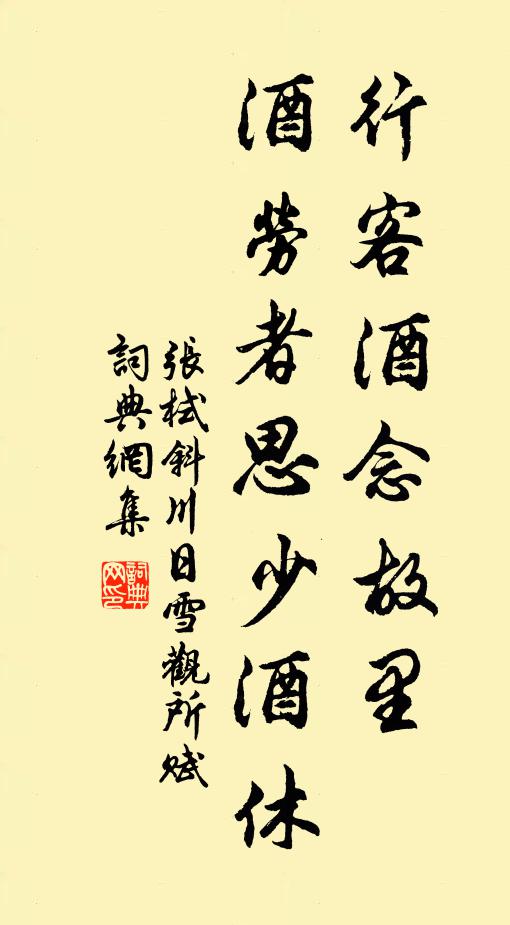 行客酒念故里
酒勞者思少酒休
張栻斜川日雪觀所賦
詞典網集
詞典网印